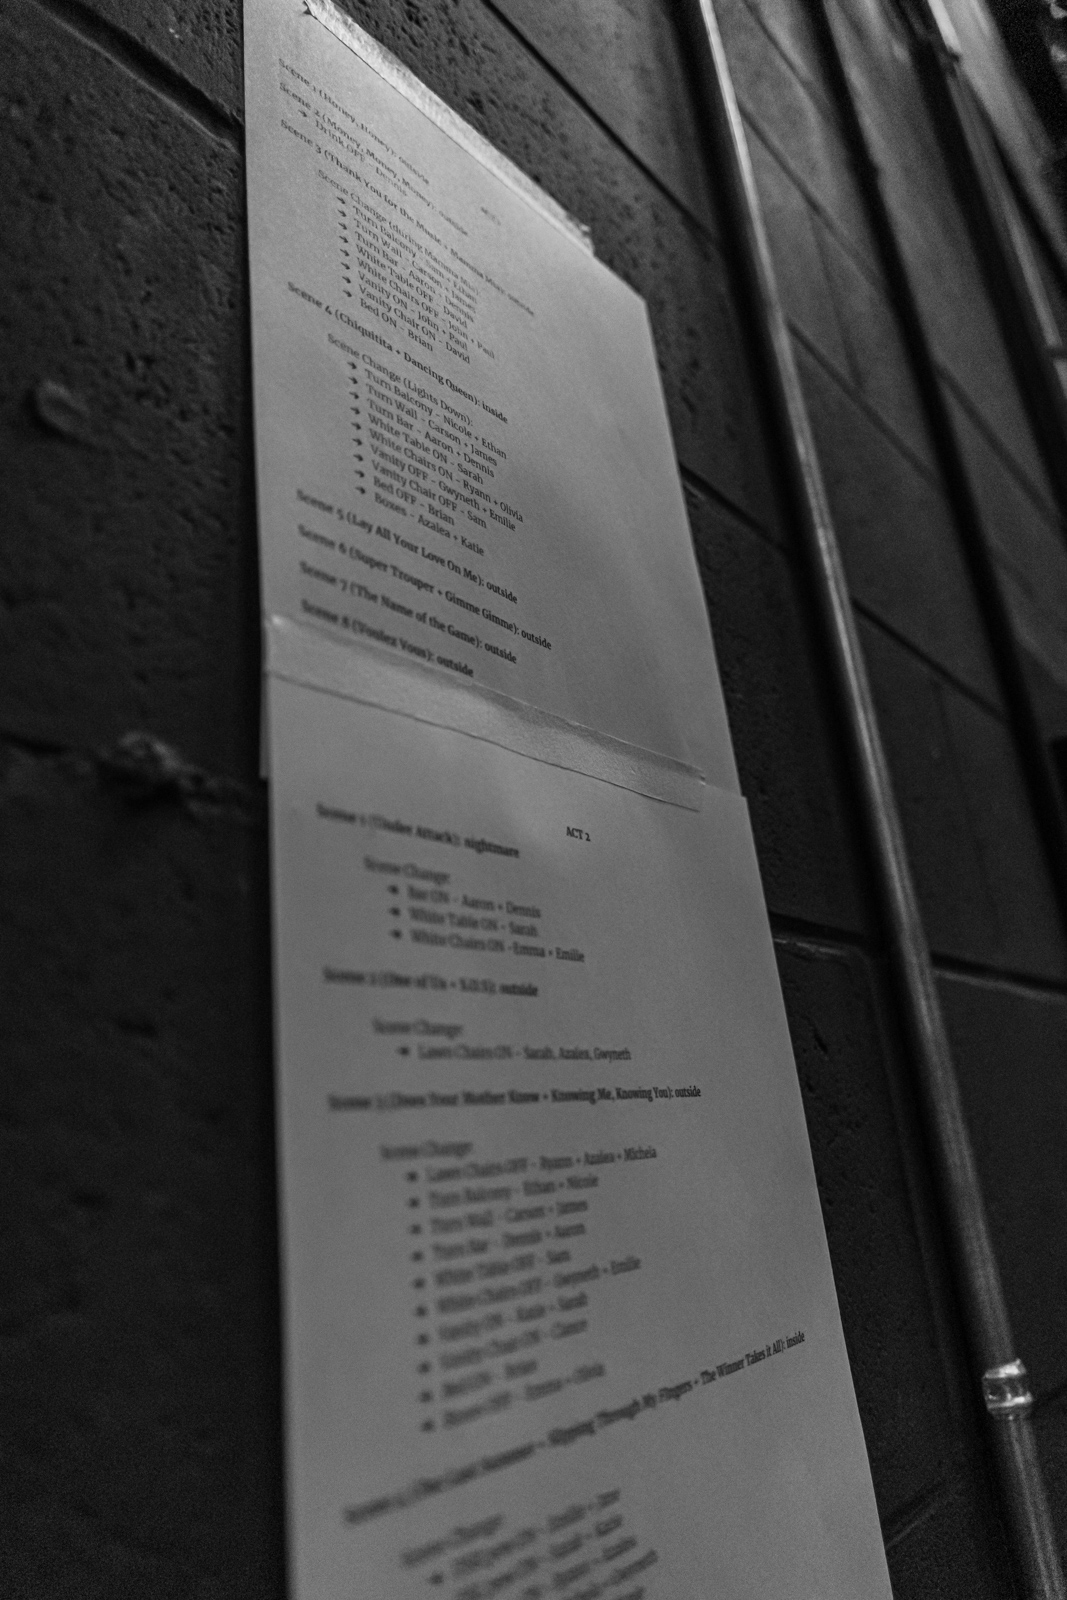 ACT 1
Scene 1 (Honey, Honey): outside
Scene 2 (Money, Money, Money): outside
➔ Drink OFF - Dennis
Scene 3 (Thank You for the Music + Mamma Mia): outside
Scene Change (during Mamma Mia):
➔ Turn Balcony - Ethan
➔ Turn Wall - Carson + James
➔ Turn Bar - Aaron + Dennis
➔ White Table OFF - David
➔ White Chairs OFF - John + Paul
➔ Vanity ON - John + Paul
➔ Vanity Chair ON - David
➔ Bed ON - Brian
Scene 4 (Chiquitita + Dancing Queen): inside
Scene Change (Lights Down):
➔ Turn Balcony - Nicole + Ethan
➔ Turn Wall - Carson + James
➔ Turn Bar - Aaron + Dennis
➔ White Table ON - Sarah
➔ White Chairs ON - Ryann + Olivia
➔ Vanity OFF - Gwyneth + Emilie
➔ Vanity Chair OFF - Sam
➔ Bed OFF - Brian
➔ Boxes - Azalea + Katie
Scene 5 (Lay All Your Love On Me): outside
Scene 6 (Super Trouper + Gimme Gimme): outside
Scene 7 (The Name of the Game): outside
Scene 8 (Voulez Vous): outside
ACT 2
Scene 1 (Under Attack): nightmare
Scene Change:
➔ Bar ON - Aaron + Dennis
➔ White Table ON - Sarah
➔ White Chairs ON -Emma + Emilie
Scene 2 (One of Us + S.O.S): outside
Scene Change:
➔ Lawn Chairs ON - Sarah, Azalea, Gwyneth
Scene 3 (Does Your Mother Know + Knowing Me, Knowing You): outside
Scene Change:
➔ Lawn Chairs OFF - Ryann + Azalea + Micheia
➔ Turn Balcony - Ethan + Nicole
➔ Turn Wall - Carson + James
➔ Turn Bar - Dennis + Aaron
➔ White Table OFF - Sam
➔ White Chairs OFF - Gwyneth + Emilie
➔ Vanity ON - Katie + Sarah
➔ Vanity Chair ON -
➔ Bed ON - Brian
➔ Boxes OFF - Emma + Olivia
Scene 4 (Our Last Summer + Slipping Through My Fingers + The Winner Takes it All): inside
Scene Change: